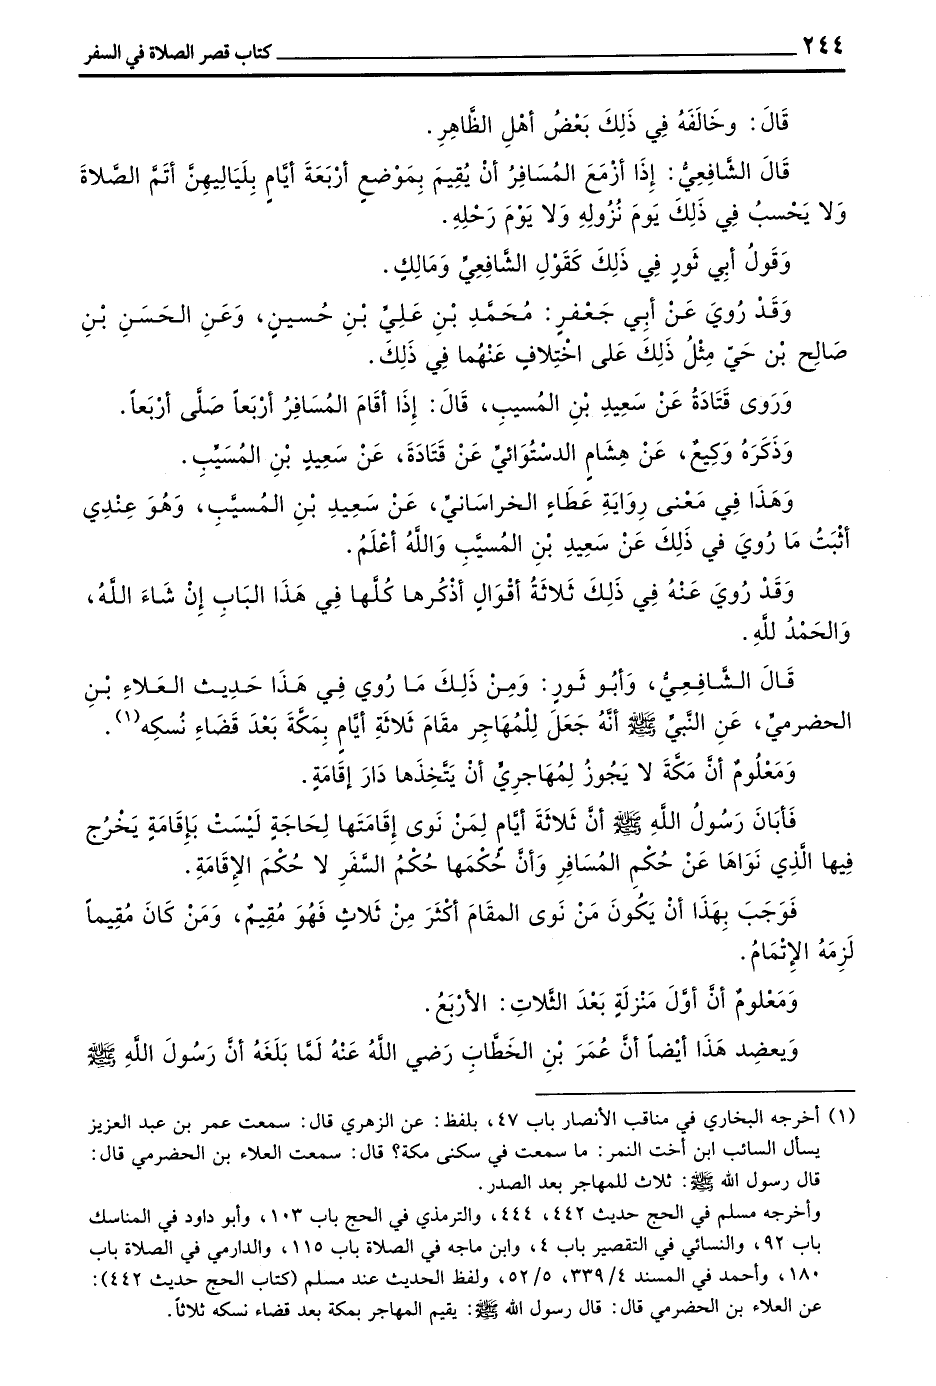 ٢٤٤ كتاب قصر الصلاة في السفر
قَالَ: وخَالَفَهُ فِي ذَلِكَ بَعْضُ أهْلِ الظَّاهِرِ.
قَالَ الشَّافِعِيُّ: إِذَا أزْمَعَ المُسَافِرُ أنْ يُقِيمَ بِمَوْضعٍ أرْبَعَةَ أيَّامٍ بِلَيَالِيهِنَّ أتَمَّ الصَّلاةَ
وَلا يَحْسبُ فِي ذَلِكَ يَومَ نُزُولِهِ وَلا يَوْمَ رَحْلِهِ.
وَقَولُ أبِي ثَورٍ فِي ذَلِكَ كَقَوْلِ الشَّافِعِيِّ وَمَالِكٍ.
وَقَدْ رُويَ عَنْ أبِي جَعْفرٍ: مُحَمَّدِ بْنِ عَلِيِّ بْنِ حُسينٍ، وَعَنِ الحَسَنِ بْنِ
صَالِحِ بْنِ حَيّ مِثْلُ ذَلِكَ عَلى اخْتِلافٍ عَنْهُما فِي ذَلِكَ.
وَرَوى قَتَادَةُ عَنْ سَعِيدِ بْنِ المُسيبِ، قَالَ: إِذَا أقَامَ المُسَافِرُ أرْبَعاً صَلَّى أرْبَعاً.
وَذَكَرَهُ وَكِيعٌ، عَنْ هِشَامٍ الدسْتُوَائيِّ عَنْ قَتَادَةَ، عَنْ سَعِيدِ بْنِ المُسَيِّبِ.
وَهَذَا فِي مَعْنى رِوَايَةِ عَطَاءٍ الخراسَانيِّ، عَنْ سَعِيدِ بْنِ المُسيَّبِ، وَهُوَ عِنْدِي
أثْبَتُ مَا رُويَ في ذَلِكَ عَنْ سَعِيدِ بْنِ المُسيَّبِ وَاللَّهُ أعْلَمُ.
وَقَدْ رُويَ عَنْهُ فِي ذَلِكَ ثَلاثَةُ أقْوَالٍ أذْكُرها كُلَّها فِي هَذَا البَابِ إِنْ شَاءَ اللَّهُ،
وَالحَمْدُ للَّهِ.
قَالَ الشَّافِعِيُّ، وَأبُو ثَورٍ: وَمِنْ ذَلِكَ مَا رُويَ فِي هَذَا حَدِيث العَلاءِ بْنِ
الحضرميِّ، عَنِ النَّبيِّ ﷺ أنَّهُ جَعَلَ لِلْمُهَاجِرِ مقَامَ ثَلاثَةِ أيَّامٍ بِمَكَّةَ بَعْدَ قَضَاءِ نُسكِه(١).
وَمَعْلُومٌ أنَّ مَكَّةَ لا يَجُوزُ لِمُهَاجرِيٍّ أنْ يَتَّخِذَها دَارَ إقَامَةٍ.
فَأبَانَ رَسُولُ اللَّهِ ﷺ أنَّ ثَلاثَةَ أيَّامٍ لِمَنْ نَوى إِقَامَتَها لِحَاجَةٍ لَيْسَتْ بِإقَامَةٍ يَخْرُج
فِيها الَّذِي نَوَاهَا عَنْ حُكْمِ المُسَافِرِ وَأنَّ حُكْمَها حُكْمُ السَّفَرِ لا حُكْمَ الإِقَامَةِ.
فَوَجَبَ بِهَذَا أنْ يَكُونَ مَنْ نَوى المقَامَ أكْثَرَ مِنْ ثَلاثٍ فَهُوَ مُقِيمٌ، وَمَنْ كَانَ مُقِيماً
لَزِمَهُ الإِتْمَامُ.
وَمَعْلومٌ أنَّ أوَّلَ مَنْزِلَةٍ بَعْدَ الثَّلاثِ: الأرْبَعُ.
وَيعضِد هَذَا أيْضاً أنَّ عُمَرَ بْنِ الخَطَّابِ رَضي اللَّهُ عَنْهُ لَمَّا بَلَغَهُ أنَّ رَسُولَ اللَّهِ ﷺ
(١) أخرجه البخاري في مناقب الأنصار باب ٤٧، بلفظ: عن الزهري قال: سمعت عمر بن عبد العزيز
يسأل السائب ابن أخت النمر: ما سمعت في سكنى مكة؟ قال: سمعت العلاء بن الحضرمي قال:
قال رسول الله ﷺ: ثلاث للمهاجر بعد الصدر.
وأخرجه مسلم في الحج حديث ٤٤٢، ٤٤٤، والترمذي في الحج باب ١٠٣، وأبو داود في المناسك
باب ٩٢، والنسائي في التقصير باب ٤، وابن ماجه في الصلاة باب ١١٥، والدارمي في الصلاة باب
١٨٠، وأحمد في المسند ٣٣٩/٤، ٥٢/٥، ولفظ الحديث عند مسلم (كتاب الحج حديث ٤٤٢):
عن العلاء بن الحضرمي قال: قال رسول الله ﷺ: يقيم المهاجر بمكة بعد قضاء نسكه ثلاثاً.